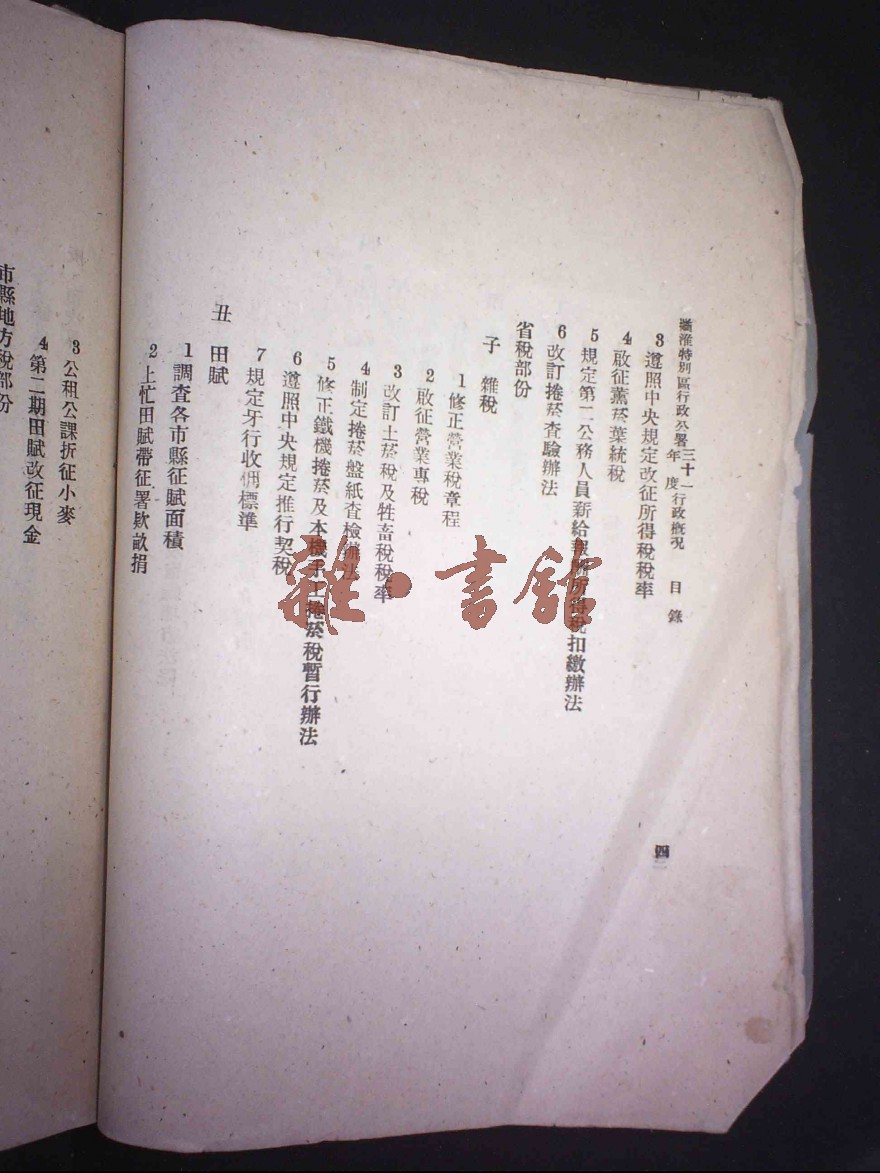 淮特別區行政公署三十一年度行政概況 目錄
3 遵照中央規定改征所得稅稅率
4 啟征薰菸葉統稅
5 規定第一二公務人員薪給報酬所得稅扣繳辦法
6 改訂捲菸查驗辦法
省稅部份
子 雜稅
1 修正營業稅章程
2 啟征營業專稅
3 改訂土菸稅及牲畜稅稅率
4 制定捲菸盤紙查檢辦法
5 修正鐵機捲菸及本機手工捲菸稅暫行辦法
6 遵照中央規定推行契稅
7 規定牙行收佣標準
丑 田賦
1 調查各市縣征賦面積
2 上忙田賦帶征署欵畝捐
四
3 公租公課折征小麥
4 第二期田賦改征現金
市縣地方稅部份
雜·書館